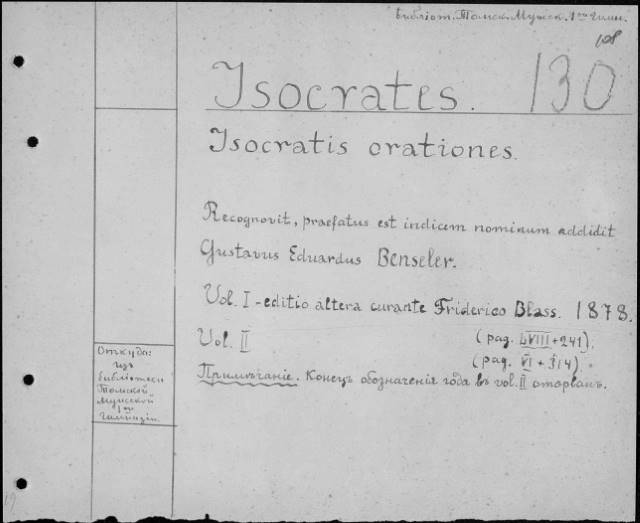 Библіот. Томск. Мужск. 1ой Гимн.
108
130
Isocrates.
Isocratis orationes.
Recognovit, praefatus est indicem nominum addidit
Gustavus Eduardus Benseler.
Vol. I - editio altera curante Friderico Blass. 1878.
(pag. LVIII + 241).
Vol. II
(pag. VI + 314).
Примѣчаніе. Конецъ обозначенія года въ vol. II оторванъ.
Откуда:
изъ
библіотеки
Томской
Мужской
1ой
гимназіи.
19